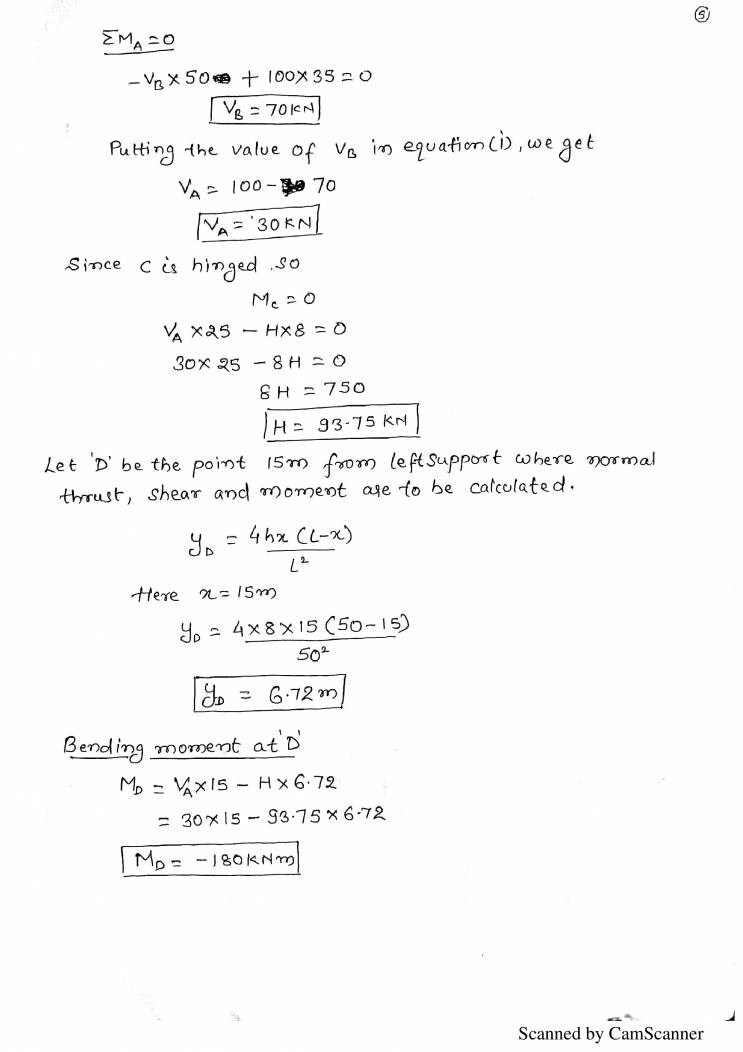 ⑤
ΣM_A = 0
- V_B × 50 + 100 × 35 = 0
V_B = 70 KN
Putting the value of V_B in equation (i), we get
V_A = 100 - 70
V_A = 30 KN
Since C is hinged, so
M_c = 0
V_A × 25 - H × 8 = 0
30 × 25 - 8H = 0
8H = 750
H = 93.75 KN
Let 'D' be the point 15m from left support where normal
thrust, shear and moment are to be calculated.
y_D = 4hx (L-x) / L²
Here x = 15m
y_D = 4×8×15 (50-15) / 50²
y_D = 6.72 m
Bending moment at 'D'
M_D = V_A × 15 - H × 6.72
= 30 × 15 - 93.75 × 6.72
M_D = -180 KNm
Scanned by CamScanner